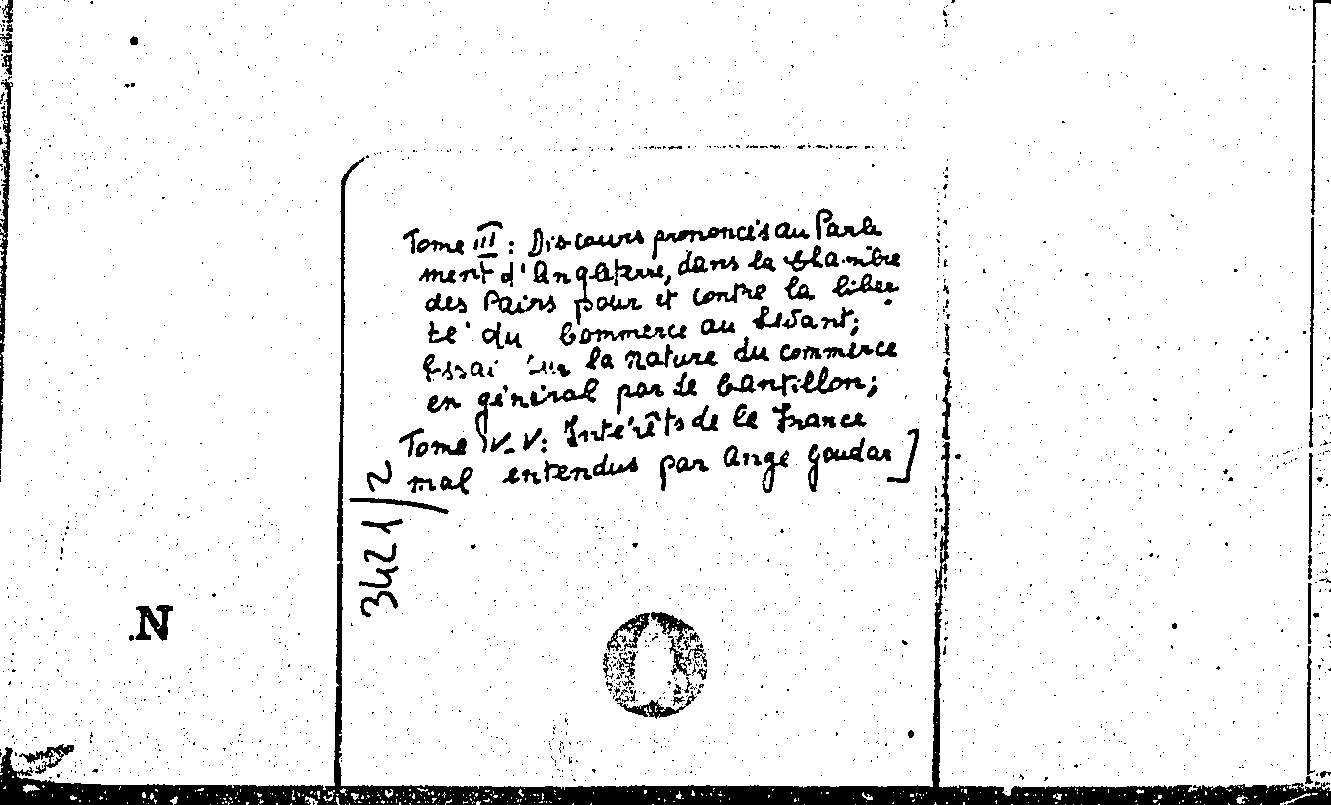 Tome III : Discours prononcés au Parle
ment d'Angleterre, dans la Chambre
des Pairs pour et contre la liber
té du Commerce au Levant ;
Essai sur la nature du commerce
en général par de Cantillon ;
Tome IV-V : Intérêts de la France
mal entendus par Ange Goudar ]
3421/2
N